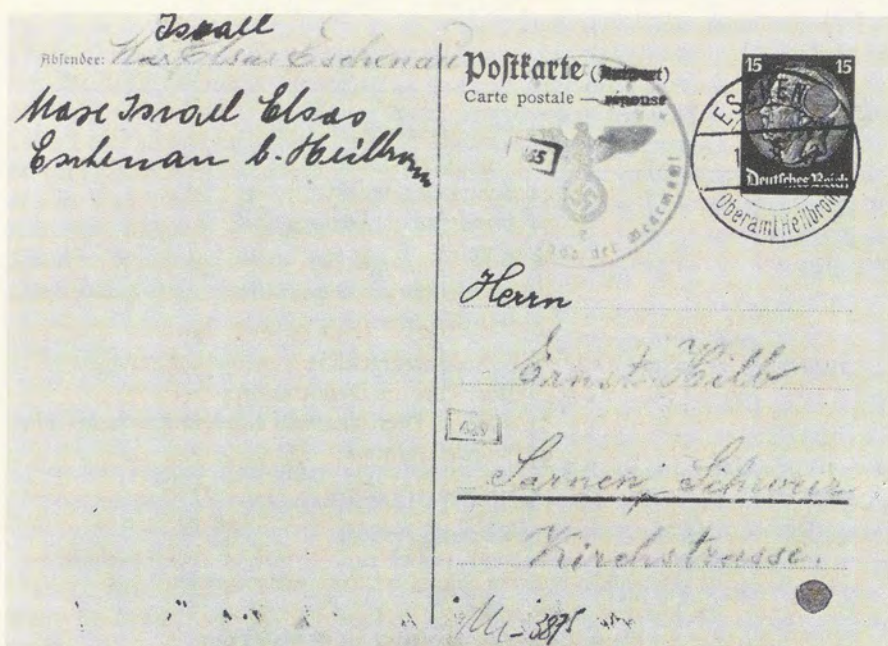 Israel
Absender: Max Elsas Eschenau
Max Israel Elsas
Eschenau b. Heilbronn
Postkarte (Antwort)
Carte postale — réponse
15 15
ESCHEN
Deutsches Reich
Oberamt Heilbronn
der Wehrmacht
Herrn
Ernst Hilb
Sarnen, Schweiz
Kirchstrasse.
3875